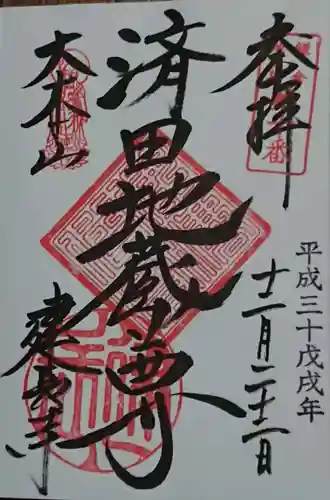 奉拝
平成三十戊戌年
十二月二十二日
済田地蔵尊
大本山
建長寺